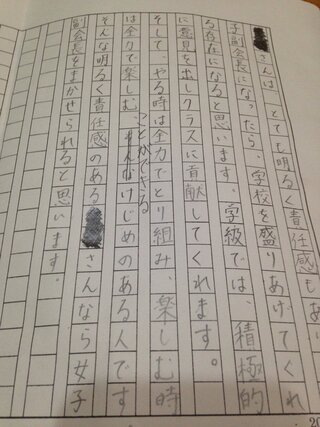 さんは、とても明るく責任感もあ
子副会長になったら、学校を盛りあげてくれ
る存在になると思います。学級では、積極的
に意見を出しクラスに貢献してくれます。
そして、やる時は全力でとり組み、楽しむ時
は全力で楽しむことができるけじめのある人です
そんな明るく責任感のある さんなら女子
副会長をまかせられると思います。
20